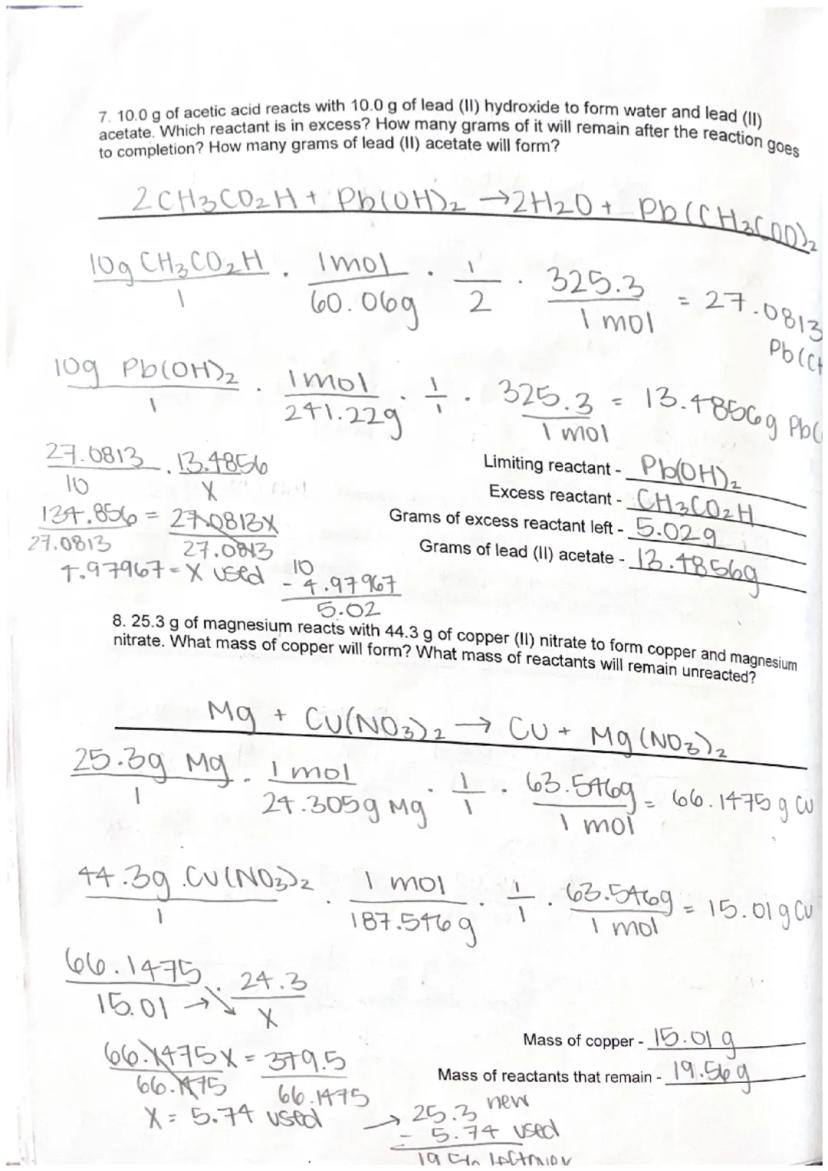 7. 10.0 g of acetic acid reacts with 10.0 g of lead (II) hydroxide to form water and lead (II)
acetate. Which reactant is in excess? How many grams of it will remain after the reaction goes
to completion? How many grams of lead (II) acetate will form?
2CH3CO2H + Pb(OH)2 → 2H2O + Pb(CH3COO)2
10g CH3CO2H / 1 · 1mol / 60.06g · 1 / 2 · 325.3 / 1 mol = 27.0813
Pb(CH
10g Pb(OH)2 / 1 · 1mol / 241.22g · 1 / 1 · 325.3 / 1 mol = 13.4856g Pb(
27.0813 / 10 · 13.4856 / X
Limiting reactant - Pb(OH)2
Excess reactant - CH3CO2H
134.856 / 27.0813 = 27.0813X / 27.0813
Grams of excess reactant left - 5.02g
Grams of lead (II) acetate - 13.4856g
4.97967 = X used
10
- 4.97967
5.02
8. 25.3 g of magnesium reacts with 44.3 g of copper (II) nitrate to form copper and magnesium
nitrate. What mass of copper will form? What mass of reactants will remain unreacted?
Mg + Cu(NO3)2 → Cu + Mg(NO3)2
25.3g Mg / 1 · 1 mol / 24.305g Mg · 1 / 1 · 63.546g / 1 mol = 66.1475 g Cu
44.3g Cu(NO3)2 / 1 · 1 mol / 187.546g · 1 / 1 · 63.546g / 1 mol = 15.01 g Cu
66.1475 / 15.01 → 24.3 / X
66.1475X / 66.1475 = 379.5 / 66.1475
X = 5.74 used
Mass of copper - 15.01 g
Mass of reactants that remain - 19.56 g
new
→ 25.3
- 5.74 used